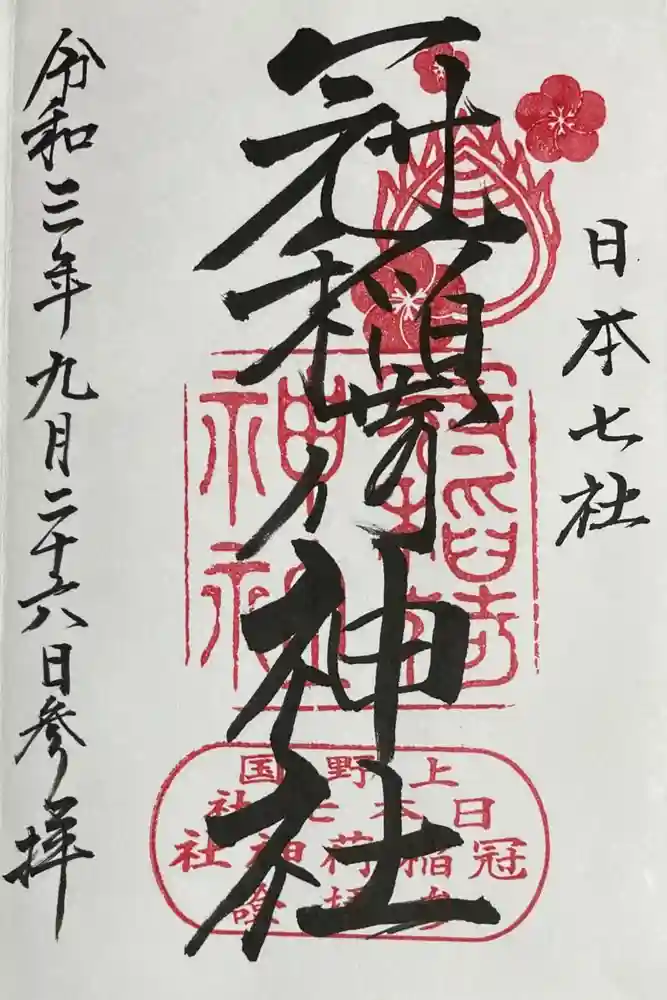 日本七社
冠稲荷神社
令和三年九月二十六日参拝
冠稲荷神社
上野国
日本七社
冠稲荷神社
参拝之證